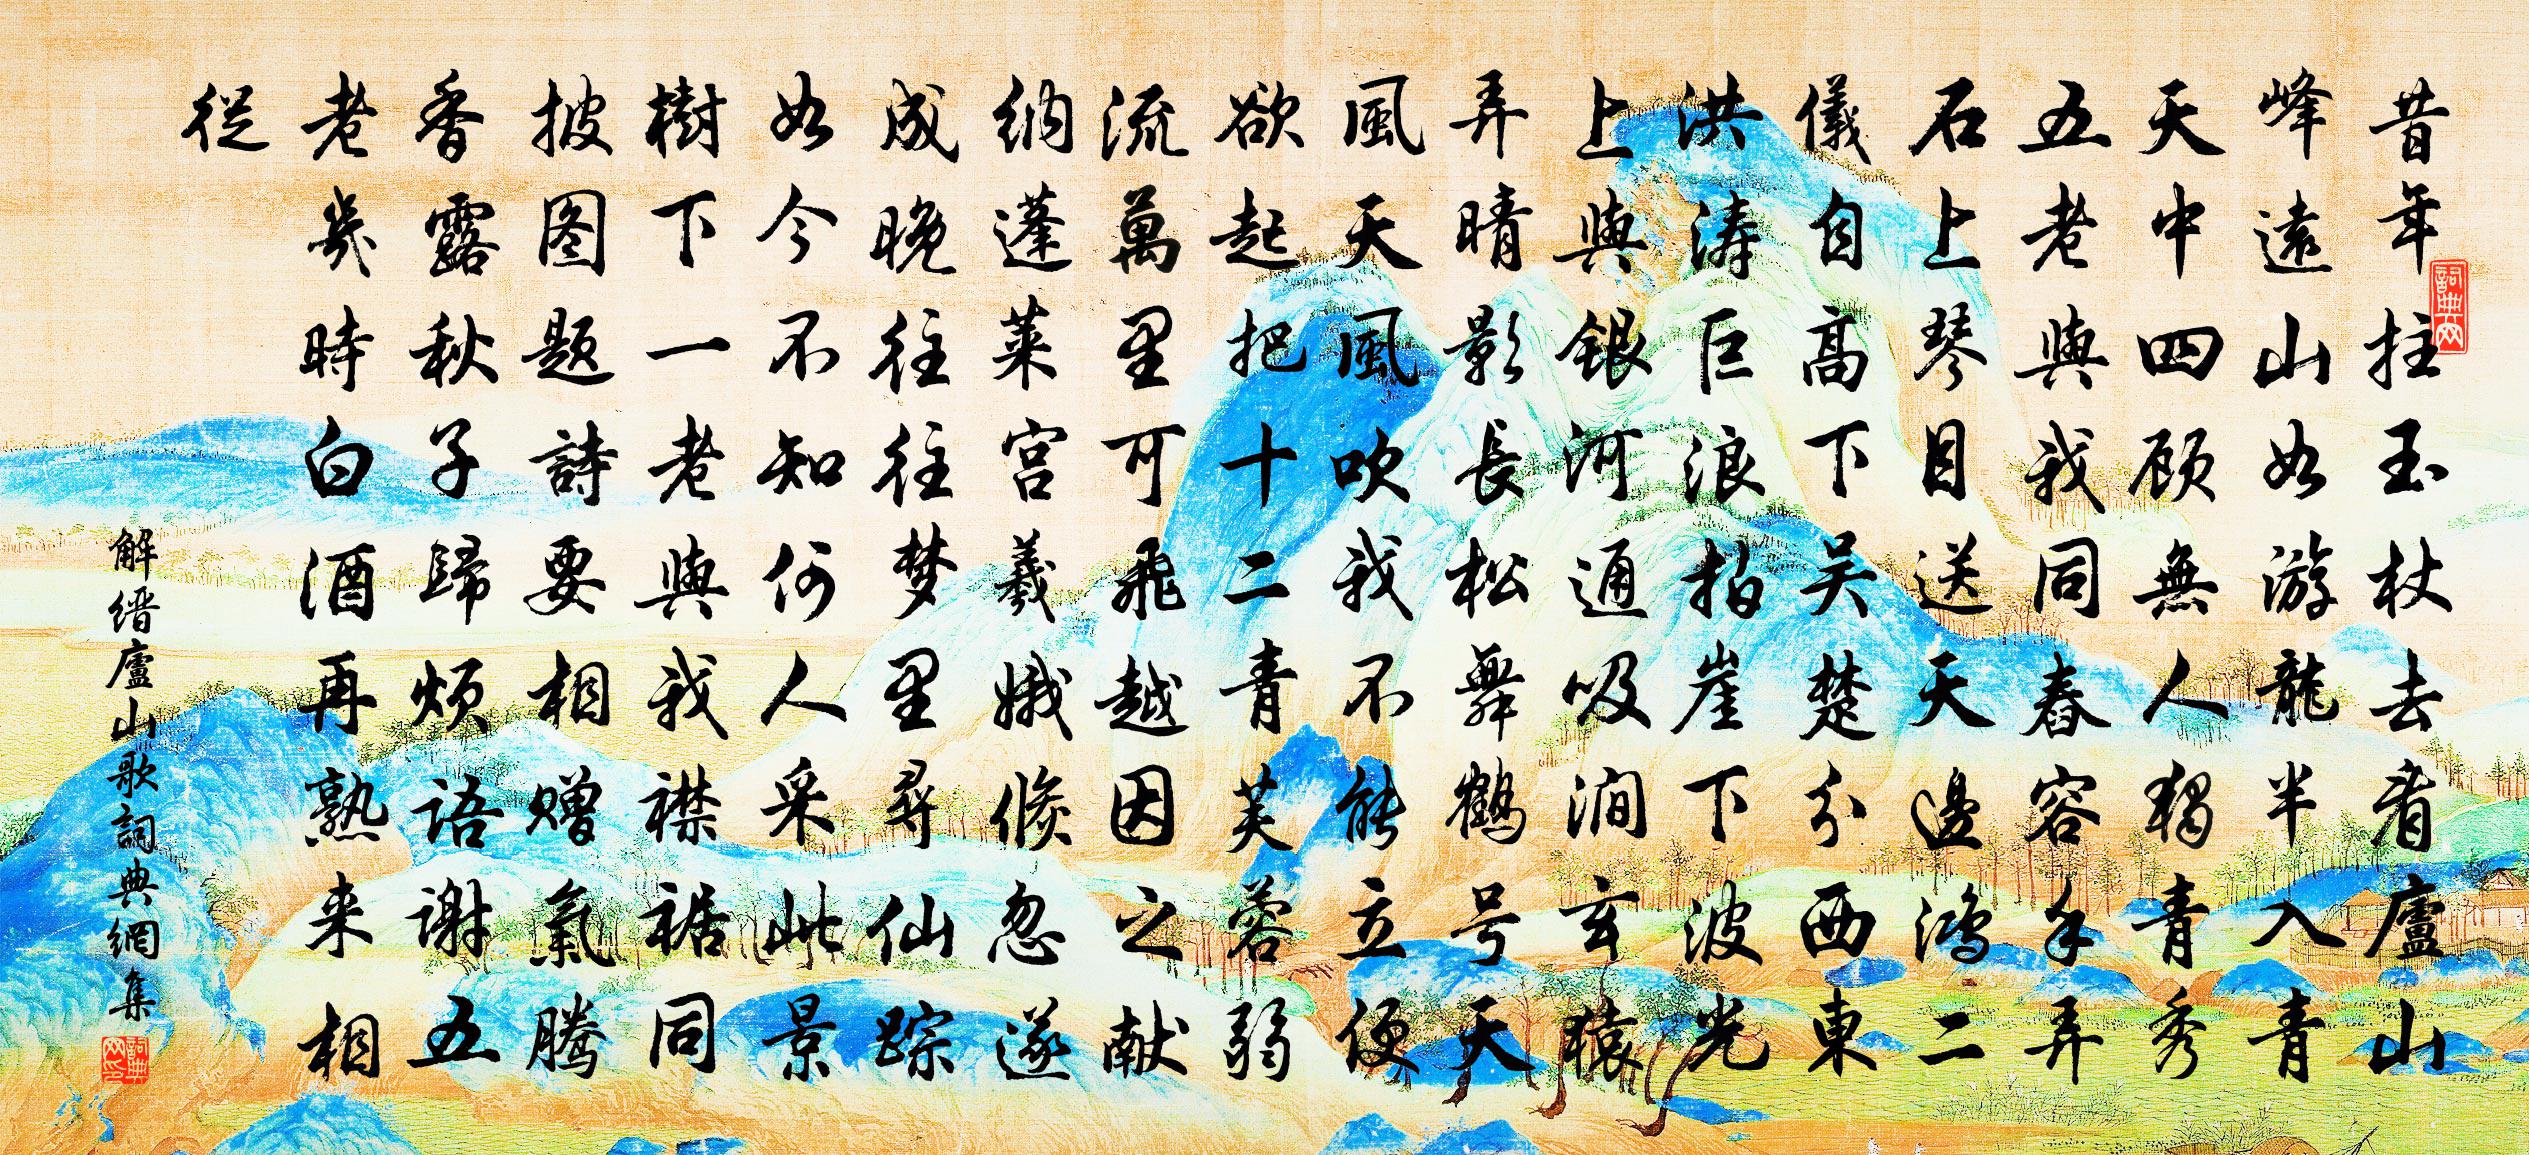 昔年拄玉杖去看廬山
峰遠山如游龍半入青
天中四顾無人獨青秀
五老與我同舂容手弄
石上琴目送天邊鴻二
儀自高下吴楚分西東
洪涛巨浪拍崖下波光
上與銀河通吸涧玄猿
弄晴影長松舞鶴号天
風天風吹我不能立便
欲起把十二青芙蓉弱
流萬里可飛越因之献
纳蓬莱宫羲娥倏忽遂
成晚往往梦里尋仙踪
如今不知何人采此景
樹下一老與我襟裾同
披图题詩要相赠氣腾
香露秋子歸烦語谢五
老幾時白酒再熟来相
從
解缙廬山歌詞典網集
詞典网
詞典网印